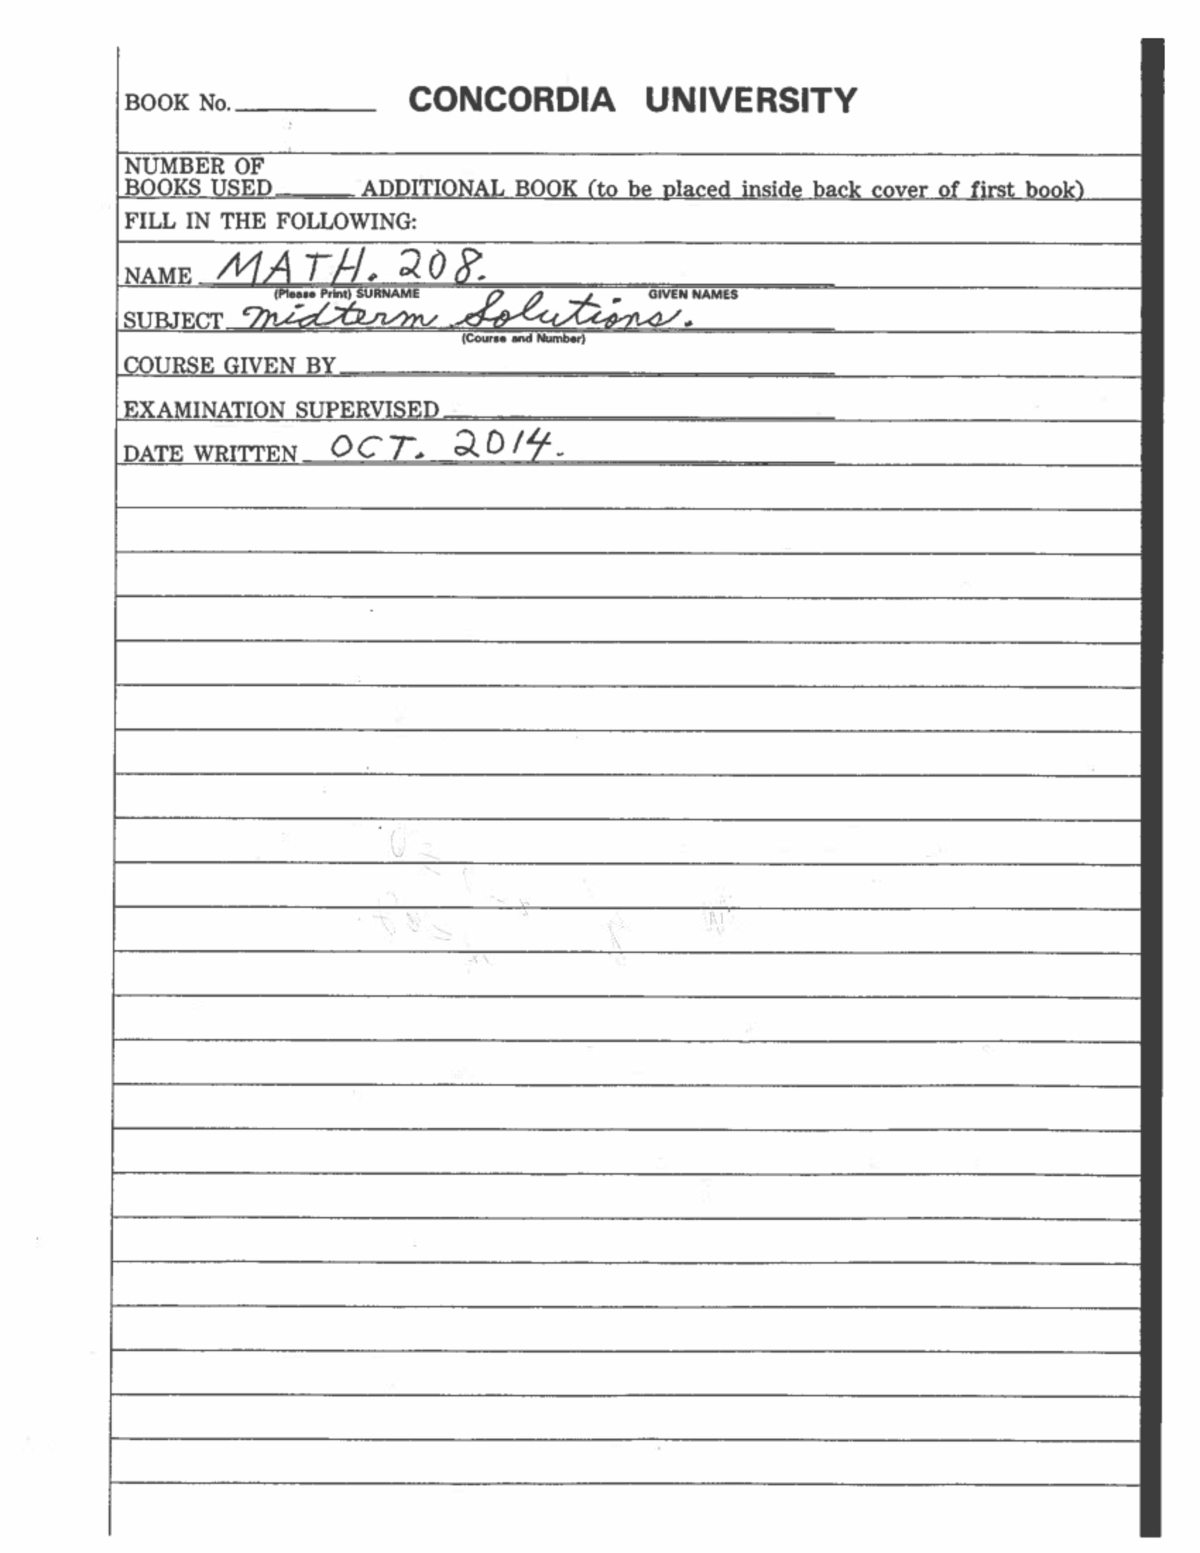 BOOK No. CONCORDIA UNIVERSITY
NUMBER OF
BOOKS USED ADDITIONAL BOOK (to be placed inside back cover of first book)
FILL IN THE FOLLOWING:
NAME MATH. 208.
(Please Print) SURNAME GIVEN NAMES
SUBJECT Midterm Solutions.
(Course and Number)
COURSE GIVEN BY
EXAMINATION SUPERVISED
DATE WRITTEN OCT. 2014.